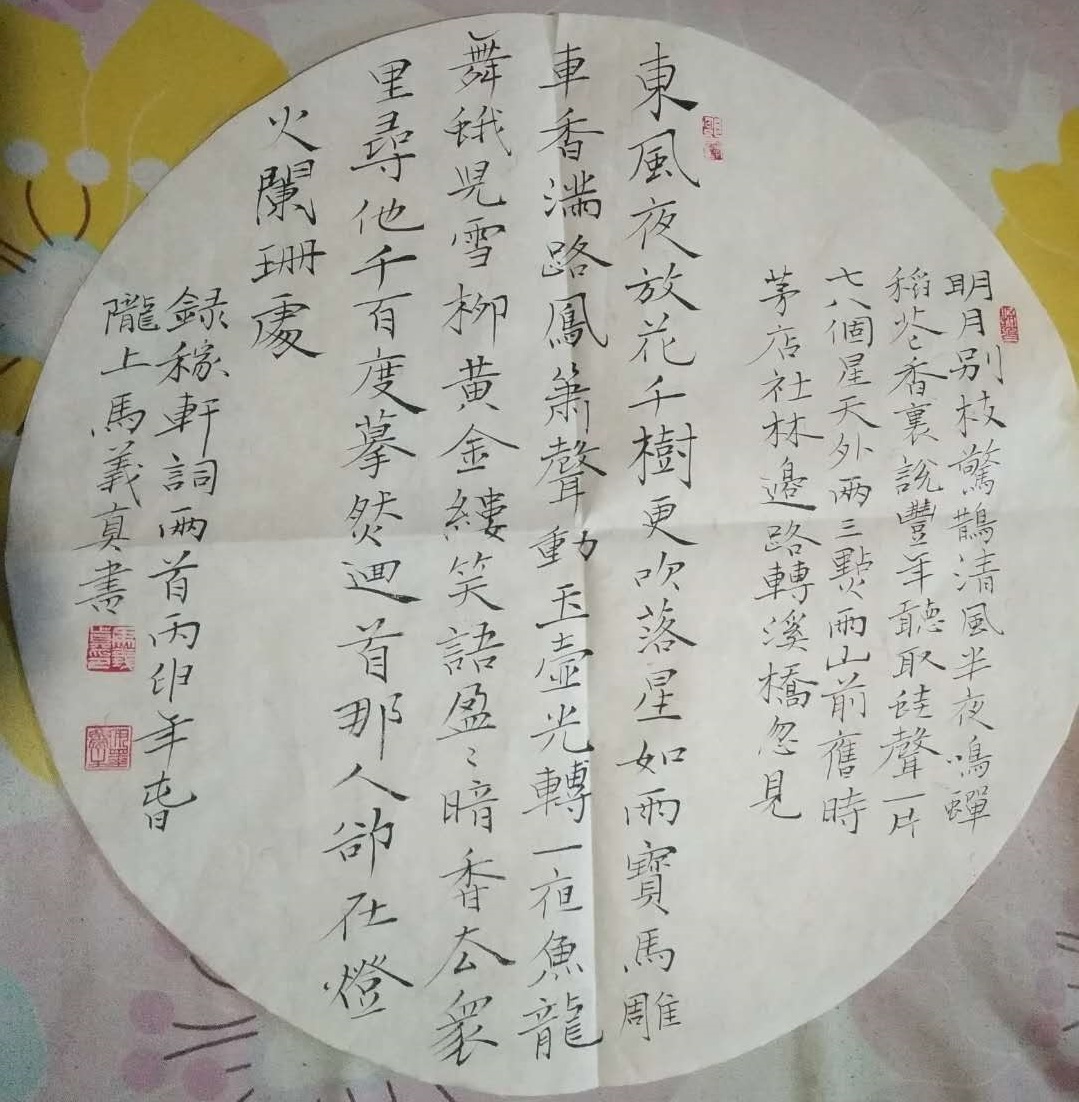 明月别枝驚鵲清風半夜鳴蟬
稻花香裏說豐年聽取蛙聲一片
七八個星天外兩三點雨山前舊時
茅店社林邊路轉溪橋忽見
東風夜放花千樹更吹落星如雨寶馬雕
車香滿路鳳簫聲動玉壺光轉一夜魚龍
舞蛾兒雪柳黃金縷笑語盈〻暗香去衆
里尋他千百度摹然迴首那人卻在燈
火闌珊處
録稼軒詞兩首丙申年春
隴上馬義真書